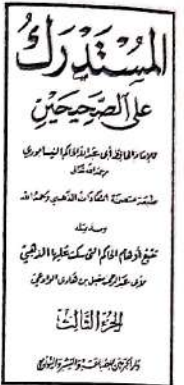 المستدرك
على الصحيحين
للإمام الحافظ أبي عبد الله الحاكم النيسابوري
رحمه الله تعالى
طبعة متضمنة انتقادات الذهبي رحمه الله
وبذيله
تتبع أوهام الحاكم التي سكت عليها الذهبي
لأبي عبد الرحمن مقبل بن هادي الوادعي
الجزء الثالث
دار الحرمين للطباعة والنشر والتوزيع